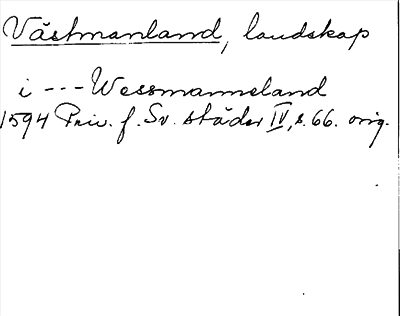 Västmanland, landskap
i --- Wessmanneland
1594 Priv. f. Sv. städer IV, s. 66. orig.